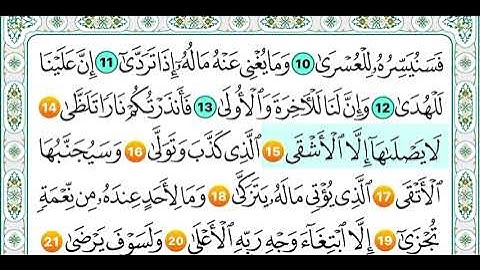 فَسَنُيَسِّرُهُۥ لِلْعُسْرَىٰ 10 وَمَا يُغْنِى عَنْهُ مَالُهُۥٓ إِذَا تَرَدَّىٰٓ 11 إِنَّ عَلَيْنَا
لَلْهُدَىٰ 12 وَإِنَّ لَنَا لَلْءَاخِرَةَ وَٱلْأُولَىٰ 13 فَأَنذَرْتُكُمْ نَارًا تَلَظَّىٰ 14
لَا يَصْلَىٰهَآ إِلَّا ٱلْأَشْقَى 15 ٱلَّذِى كَذَّبَ وَتَوَلَّىٰ 16 وَسَيُجَنَّبُهَا
ٱلْأَتْقَى 17 ٱلَّذِى يُؤْتِى مَالَهُۥ يَتَزَكَّىٰ 18 وَمَا لِأَحَدٍ عِندَهُۥ مِن نِّعْمَةٍ
تُجْزَىٰٓ 19 إِلَّا ٱبْتِغَآءَ وَجْهِ رَبِّهِ ٱلْأَعْلَىٰ 20 وَلَسَوْفَ يَرْضَىٰ 21